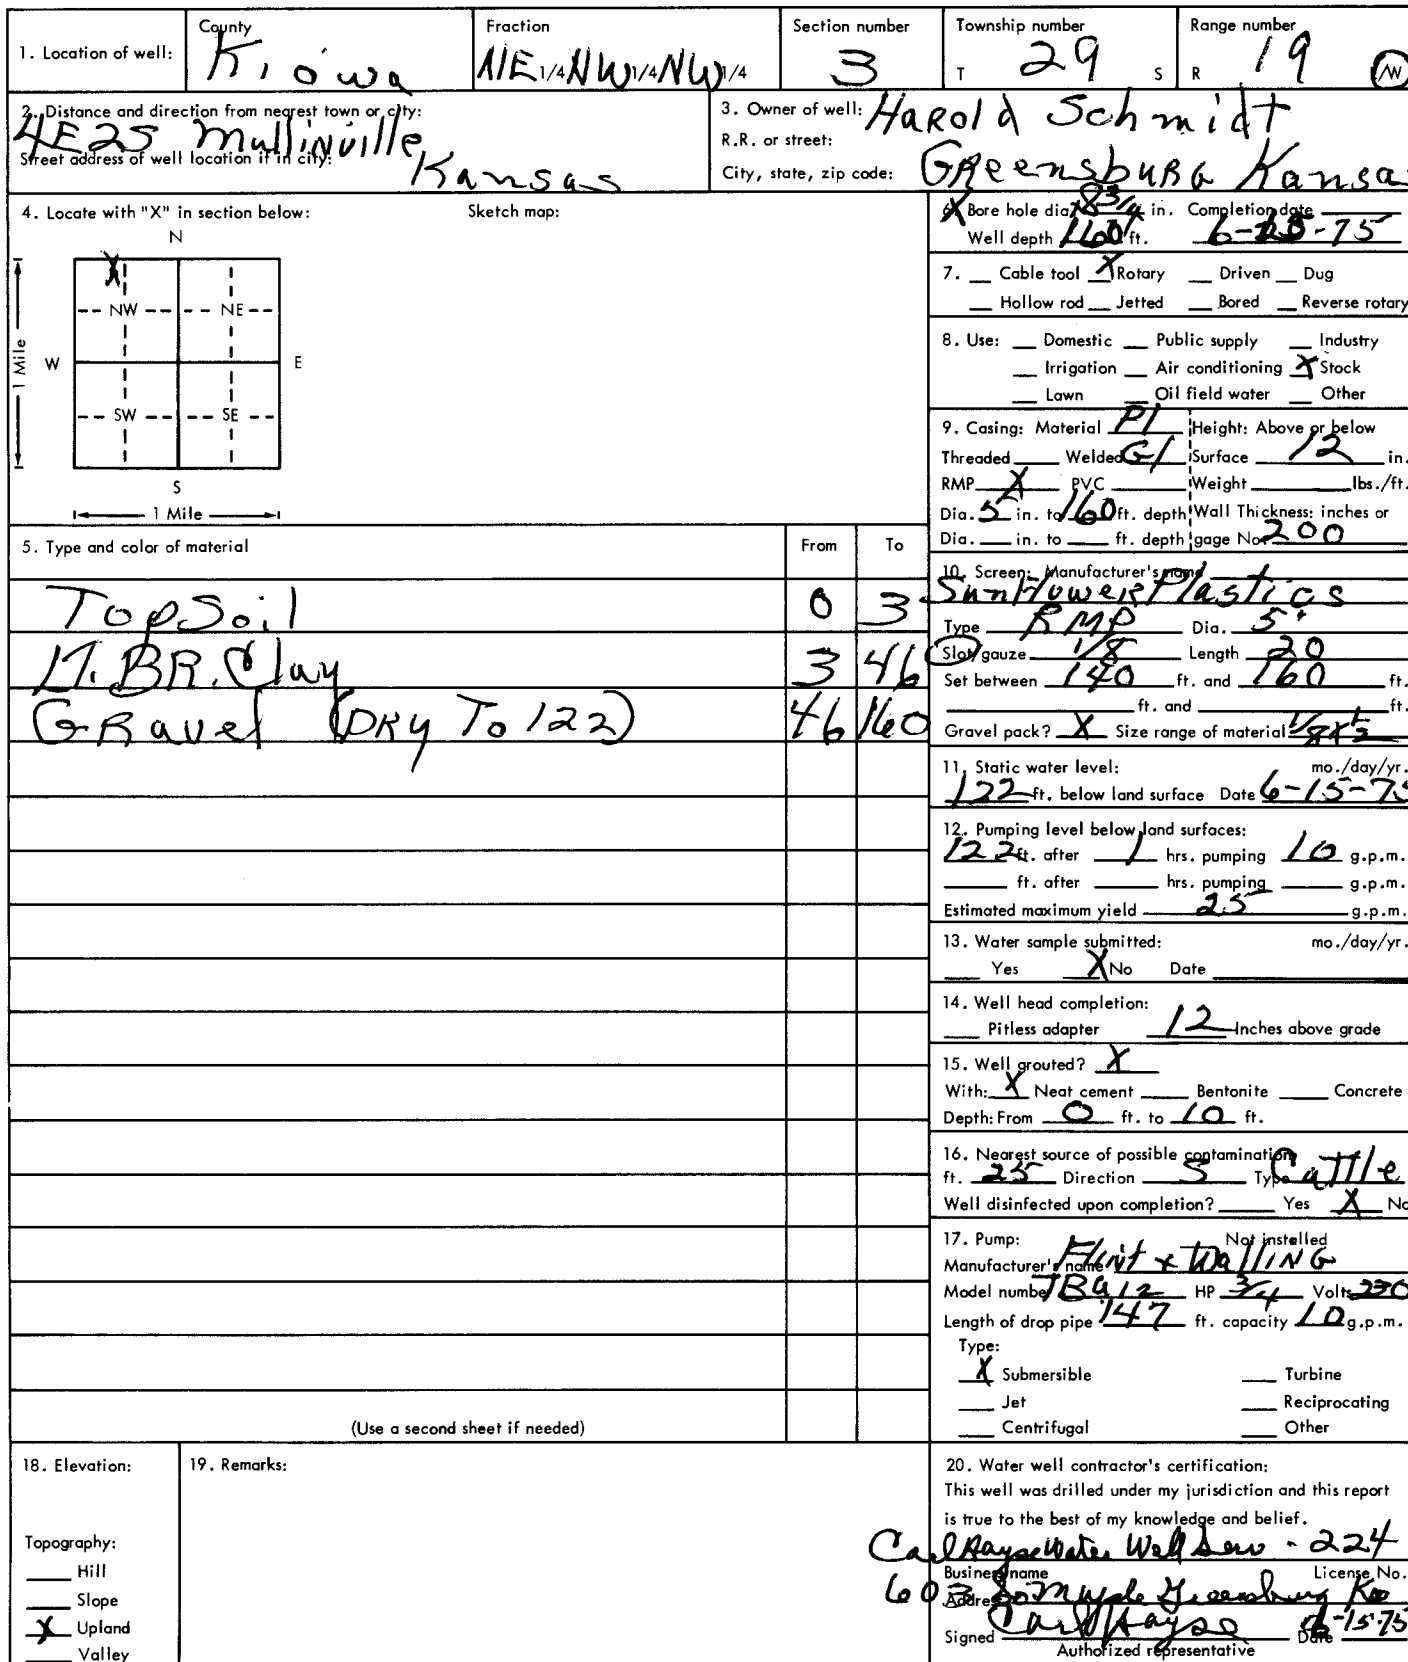 1. Location of well:
County
Kiowa
Fraction
NE 1/4 NW 1/4 NW 1/4
Section number
3
Township number
T 29 S
Range number
R 19 /W
2. Distance and direction from nearest town or city:
4E2S Mullinville
Street address of well location if in city:
Kansas
3. Owner of well: Harold Schmidt
R.R. or street:
City, state, zip code: Greensburg Kansas
4. Locate with "X" in section below:
Sketch map:
N
X
NW NE
W E
1 Mile
SW SE
S
1 Mile
5. Type and color of material From To
TopSoil 0 3
LT. BR. Clay 3 46
Gravel (DRY To 122) 46 160
(Use a second sheet if needed)
X
6. Bore hole dia. 8 3/4 in. Completion date
Well depth 160 ft. 6-15-75
7. Cable tool X Rotary Driven Dug
Hollow rod Jetted Bored Reverse rotary
8. Use: Domestic Public supply Industry
Irrigation Air conditioning X Stock
Lawn Oil field water Other
9. Casing: Material Pl Height: Above or below
Threaded Welded Gl Surface 12 in.
RMP X PVC Weight lbs./ft.
Dia. 5 in. to 160 ft. depth Wall Thickness: inches or
Dia. in. to ft. depth gage No. 200
10. Screen: Manufacturer's name
Sunflower Plastics
Type RMP Dia. 5"
Slot/gauze 1/8 Length 20
Set between 140 ft. and 160 ft.
ft. and ft.
Gravel pack? X Size range of material 1/8 x 1/2
11. Static water level: mo./day/yr.
122 ft. below land surface Date 6-15-75
12. Pumping level below land surfaces:
122 ft. after 1 hrs. pumping 10 g.p.m.
ft. after hrs. pumping g.p.m.
Estimated maximum yield 25 g.p.m.
13. Water sample submitted: mo./day/yr.
Yes X No Date
14. Well head completion:
Pitless adapter 12 Inches above grade
15. Well grouted? X
With: X Neat cement Bentonite Concrete
Depth: From 0 ft. to 10 ft.
16. Nearest source of possible contamination:
ft. 25 Direction S Type Cattle
Well disinfected upon completion? Yes X No
17. Pump: Not installed
Manufacturer's name Flint & Walling
Model number HP 3/4 Volts 230
Length of drop pipe 147 ft. capacity 10 g.p.m.
Type:
X Submersible Turbine
Jet Reciprocating
Centrifugal Other
18. Elevation:
Topography:
Hill
Slope
X Upland
Valley
19. Remarks:
20. Water well contractor's certification:
This well was drilled under my jurisdiction and this report
is true to the best of my knowledge and belief.
Carl Hayse Water Well Serv - 224
Business name License No.
603 So Maple Greensburg Ks
Address
Signed Carl Hayse Date 6-15-75
Authorized representative